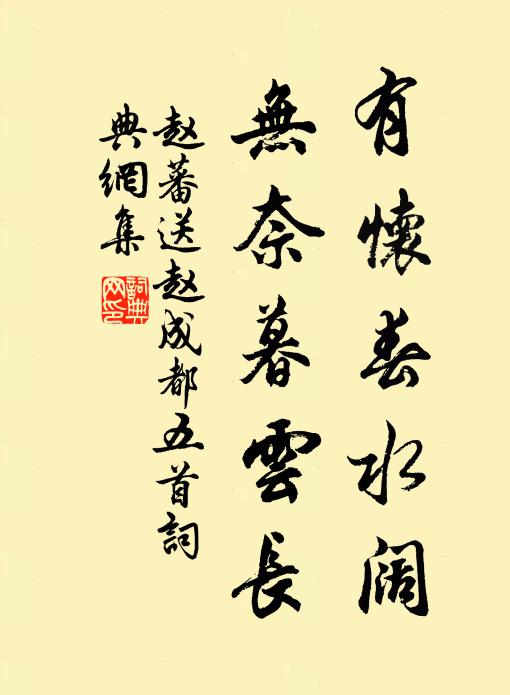 有懷春水阔
無奈暮雲長
赵蕃送赵成都五首詞
典網集
詞典网印